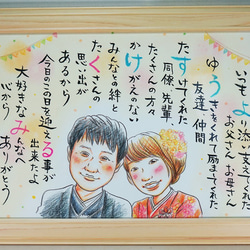 いつもより添い支えてくれた
お父さん お母さん
ゆうきをくれて励ましてくれた
友達 仲間
たすけてくれた
同僚 先輩
たくさんの方々
かけがえのない
みんなとの絆と
たくさんの
思い出が
あるから
今日のこの日を迎える事が
出来たよ
大好きなみんなへ
心から ありがとう